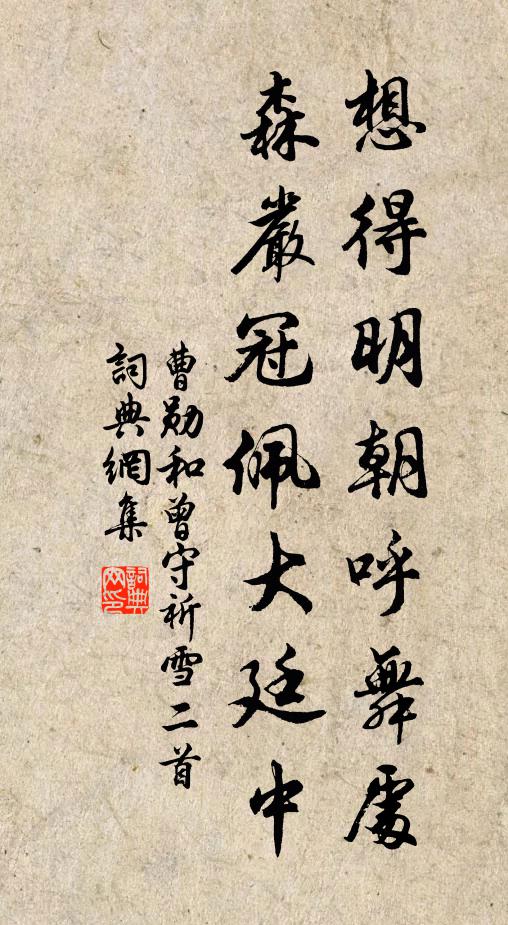 想得明朝呼舞處
森嚴冠佩大廷中
曹勛和曾守祈雪二首
詞典網集
詞典
网印